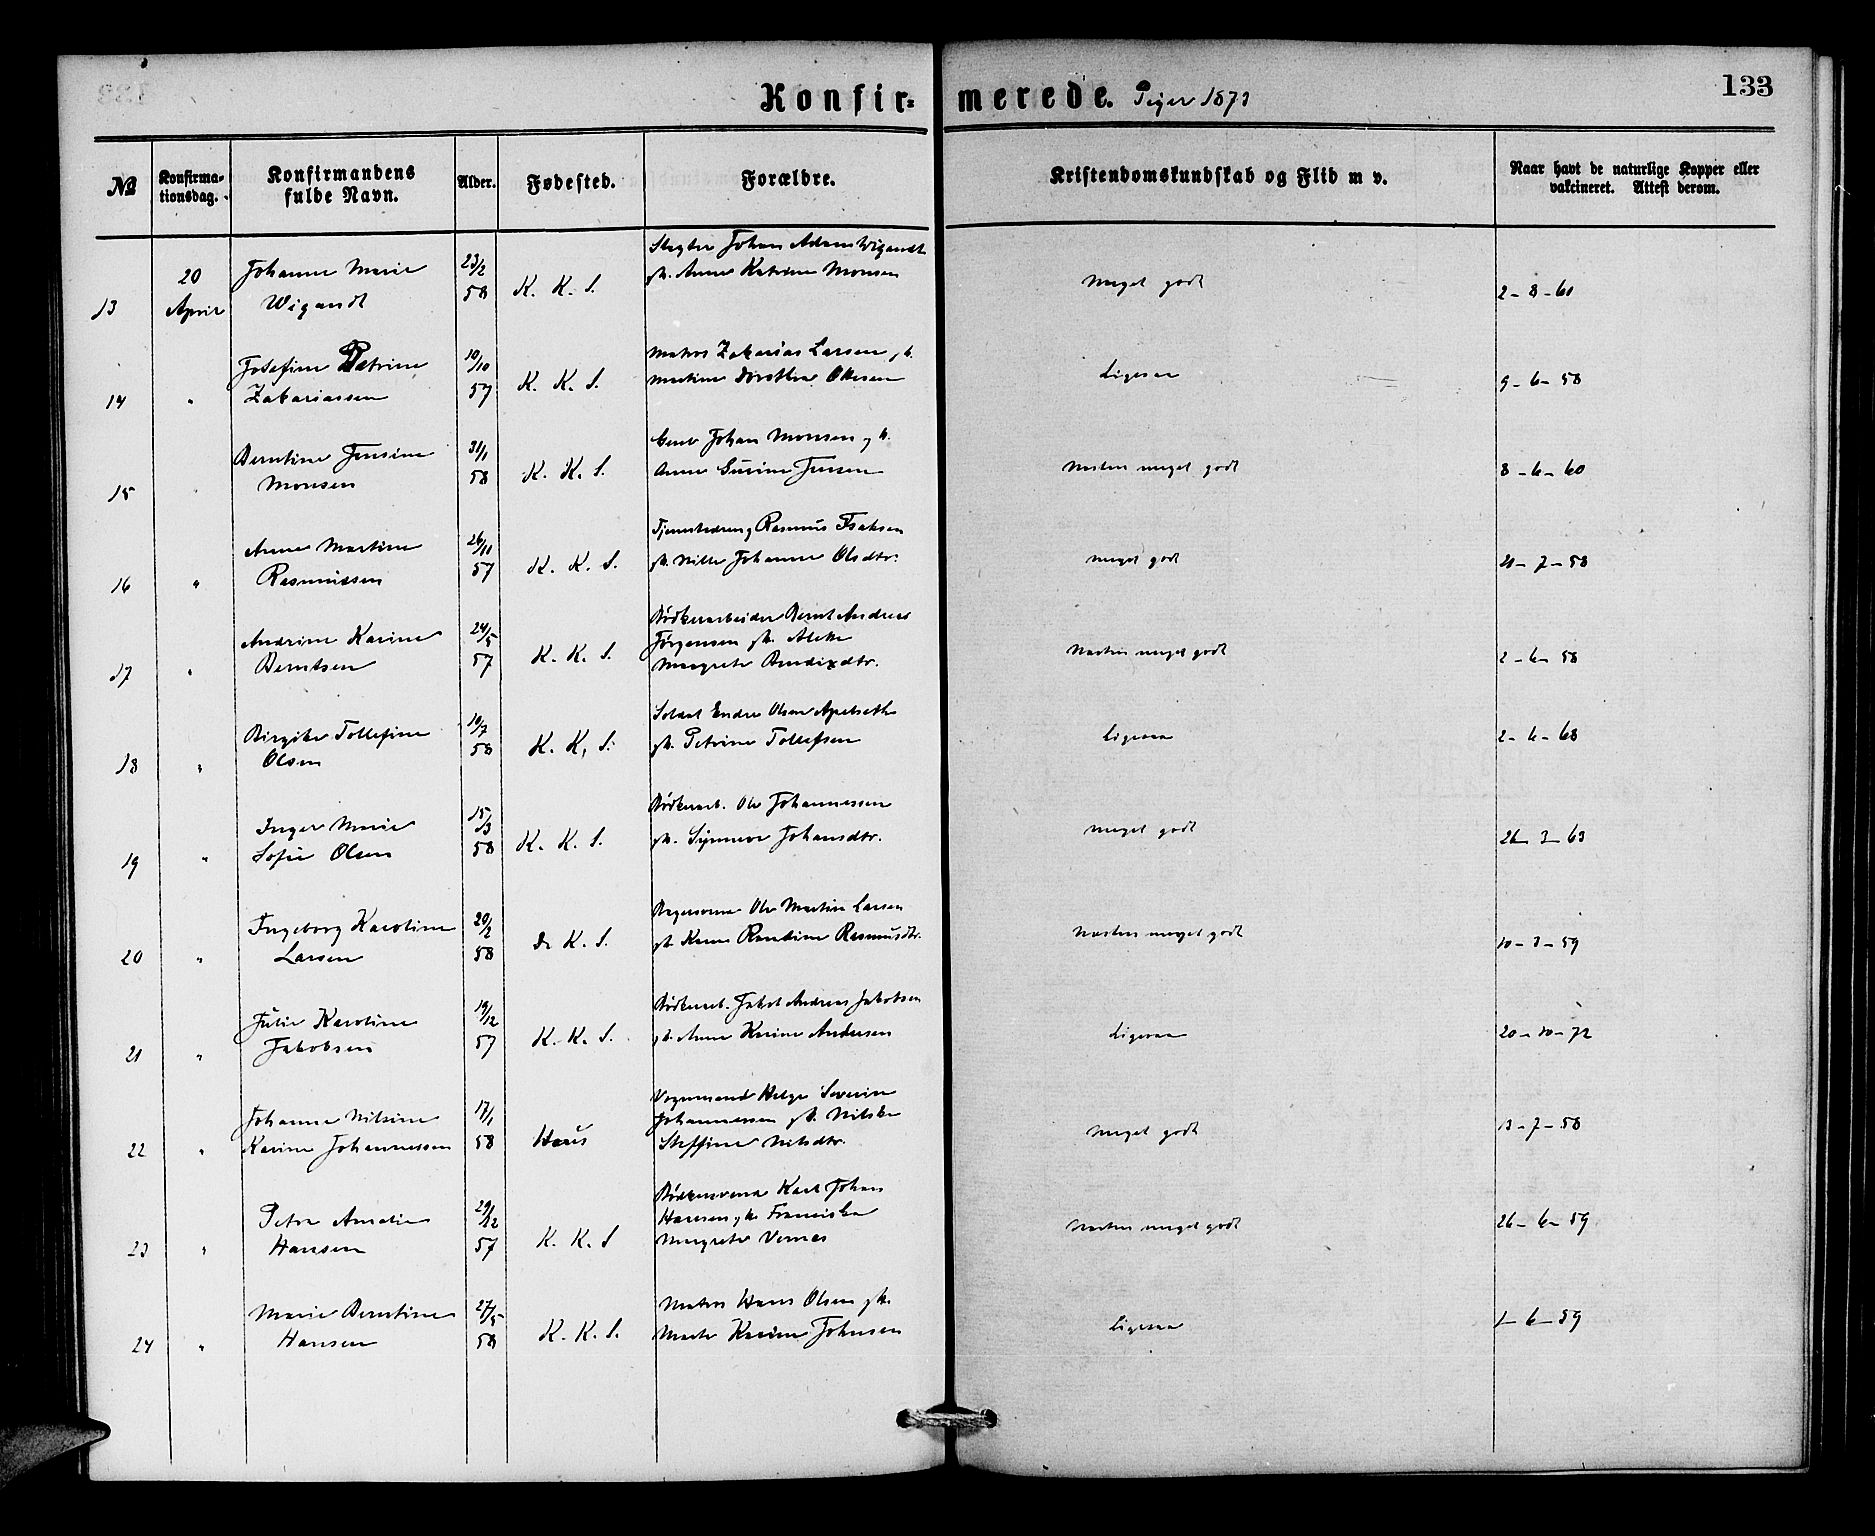 Konfir- merede. Piger 1873
133
№
Konfirma-
tionsdag.
Konfirmandens
fulde Navn.
Alder.
Fødested.
Forældre.
Kristendomskundskab og Flid m v.
Naar havt de naturlige Kopper eller
vakcineret. Attest derom.
13
20
April
Johanne Marie
Wigandt
23/2
58
K. K. S.
Johan Adam Wigandt
gh. Anne Katrine Monsen
Meget godt
2-8-60
14
"
Josefine Petrine
Zakariassen
10/10
57
K. K. S.
Matros Zakarias Larsen gh.
Martine Dorothea Ottesen
Ligesaa
9-6-58
15
"
Berntine Jensine
Monsen
31/1
58
K. K. S.
Johan Monsen gh.
Anne Gurine Jensen
Næsten meget godt
8-6-60
16
"
Anne Martine
Rasmussen
26/11
57
K. K. S.
Tjenestedreng Rasmus Isaksen
gh. Nille Johanne Olsdtr.
Meget godt
21-7-58
17
"
Andrine Karine
Berntsen
24/5
57
K. K. S.
Bødkerarbeider Bernt Andreas
Jørgensen gh. Alette
Margrete Bendixdtr.
Næsten meget godt
2-6-58
18
"
Birgitte Tollefine
Olsen
10/7
58
K. K. S.
Soldat Endre Olsen Apeltveth
gh. Petrine Tollefsen
Ligesaa
2-6-68
19
"
Inger Marie
Sofie Olsen
15/3
58
K. K. S.
Bødkerarb. Ole Johannessen
gh. Synneve Johansdtr.
Meget godt
26-3-63
20
"
Ingeborg Karoline
Larsen
20/2
58
D. K. S.
Bagersvend Ole Martin Larsen
gh. Karen Rentine Rasmusdtr.
Næsten meget godt
10-3-59
21
"
Julie Karoline
Jakobsen
19/12
57
K. K. S.
Bødkerarb. Jakob Andreas Jakobsen
gh. Anne Karine Andersen
Ligesaa
20-10-72
22
"
Johanne Nilsine
Karine Johannessen
17/1
58
Haus
Vognmand Helge Severin
Johannessen gh. Nilske
Steffine Nilsdtr.
Meget godt
13-7-58
23
"
Petra Amalie
Hansen
29/12
57
K. K. S
Bødkersvend Karl Johan
Hansen gh. Franciska
Margrete Vernes
Næsten meget godt
26-6-59
24
"
Marie Berntine
Hansen
27/5
58
K. K. S.
Matros Hans Olsen gh.
Marte Karine Johnsen
Ligesaa
1-6-59